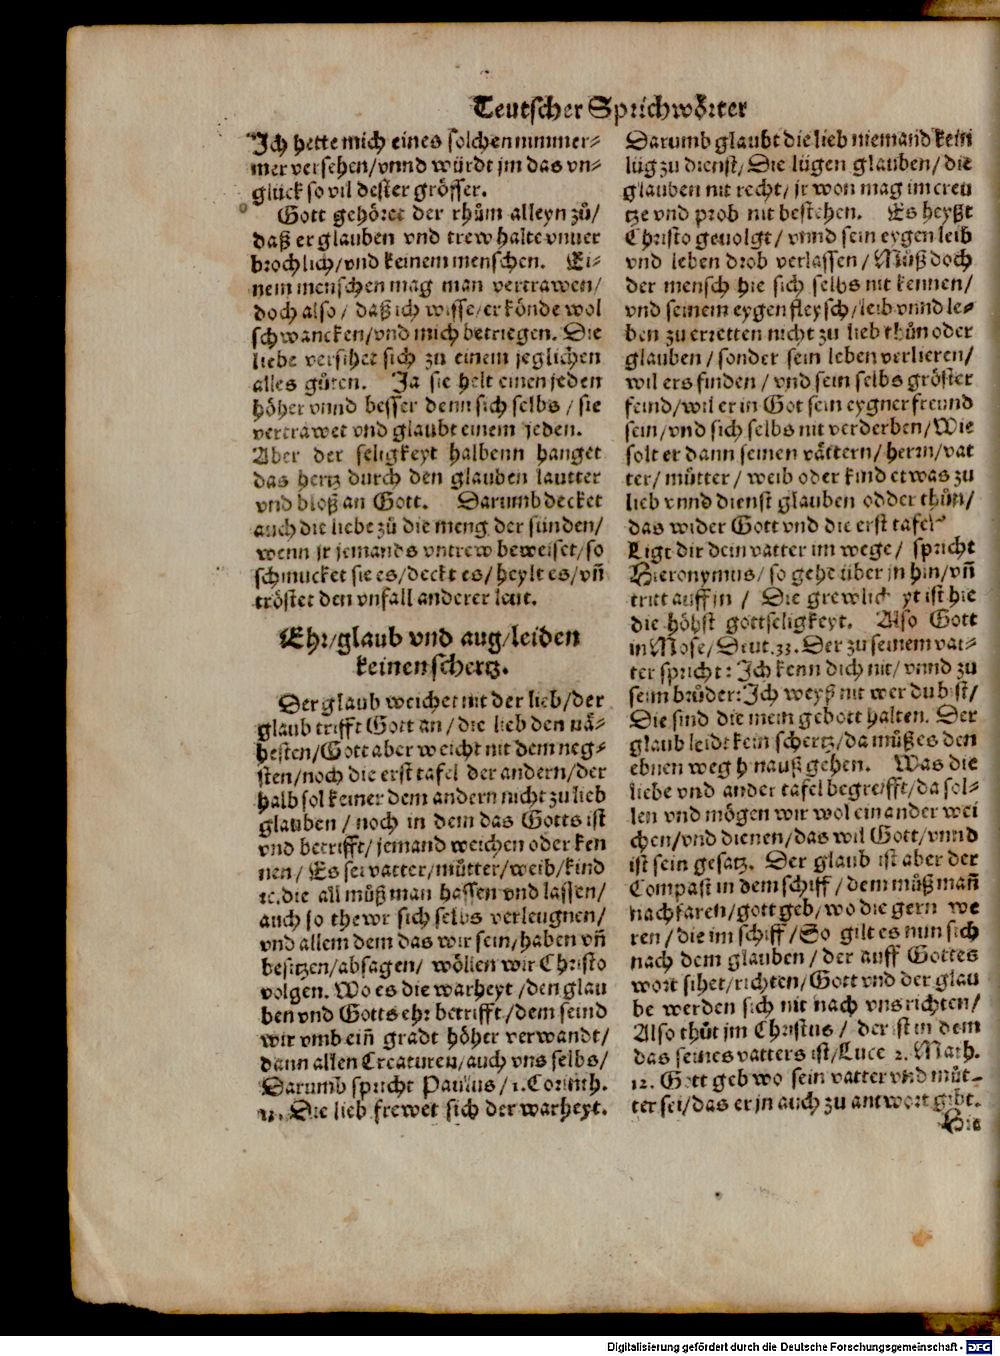 Teutscher Sprichwörter
Ich hette mich eines solchen nimmer-
mer versehen/vnnd würdt jm das vn-
glück so vil dester grösser.
Gott gehöret der rhům alleyn zů/
daß er glauben vnd trew halte vnuer
brochlich/vnd keinem menschen. Ei-
nem menschen mag man vertrawen/
doch also / daß ich wisse/er könde wol
schwancken/vnd mich betriegen. Die
liebe versihet sich zu einem jeglichen
alles gůten. Ja sie helt einen jeden
höher vnnd besser denn sich selbs / sie
vertrawet vnd glaubt einem jeden.
Aber der seligkeyt halbenn hanget
das hertz durch den glauben lautter
vnd bloß an Gott. Darumb decket
auch die liebe zů die meng der sünden/
wenn jr jemands vntrew beweiset/so
schmucket sie es/deckt es/heylt es/vñ
tröstet den vnfall anderer leut.
Ehr/glaub vnd aug/leiden
keinen schertz.
Der glaub weichet nit der lieb/der
glaub trifft Gott an/die lieb den nä-
hesten/Gott aber weicht nit dem neg-
sten/noch die erst tafel der andern/der
halb sol keiner dem andern nicht zu lieb
glauben / noch in dem das Gotts ist
vnd betrifft/jemand weichen oder ken
nen/ Es sei vatter/můtter/weib/kind
ꝛc.die all můß man hassen vnd lassen/
auch so thewr sich selbs verleugnen/
vnd allem dem das wir sein/haben vñ
besitzen/absagen/ wöllen wir Christo
volgen. Wo es die warheyt /den glau
ben vnd Gotts ehr betrifft/dem seind
wir vmb eiñ gradt höher verwandt/
dann allen Creaturen/auch vns selbs/
Darumb spricht Paulus/1.Corinth.
Die lieb frewet sich der warheyt.
Darumb glaubt die lieb niemand kein
lüg zu dienst/Die lügen glauben/die
glauben nit recht/jr won mag im creu
tze vnd prob nit bestehen. Es heyßt
Christo geuolgt/vnnd sein eygen leib
vnd leben drob verlassen/Můß doch
der mensch hie sich selbs nit kennen/
vnd seinem eygen fleysch/leib vnnd le-
ben zu erretten nicht zu lieb thůn oder
glauben/sonder sein leben verlieren/
wil ers finden/vnd sein selbs gröster
feind/wil er in Got sein eygner freund
sein/vnd sich selbs nit verderben/Wie
solt er dann seinen vättern/herrn/vat
ter/můtter/weib oder kind etwas zu
lieb vnnd dienst glauben odder thůn/
das wider Gott vnd die erst tafel
Ligt dir dein vatter im wege/ spricht
Hieronymus/so gehe über jn hin/vñ
tritt auff jn / Die ist hie
die höhst gottseligkeyt. Also Gott
in Mose/Deut.33.Der zu seinem vat-
ter spricht: Ich kenn dich nit/vnnd zu
seim brůder:Ich weyß nit wer du bist/
Die sind die mein gebott halten. Der
glaub leidt kein schertz/da můß es den
ebnen weg hinauß gehen. Was die
liebe vnd ander tafel begreifft/da sol-
len vnd mögen wir wol einander wei
chen/vnd dienen/das wil Gott/vnnd
ist sein gesatz. Der glaub ist aber der
Compast in dem schiff/dem můß mañ
nachfaren/gott geb/wo die gern we
ren/die im schiff/So gilt es nun sich
nach dem glauben/der auff Gottes
wort sihet/richten/Gott vnd der glau
be werden sich nit nach vns richten/
Also thůt jm Christus/ der ist in dem
das seines vatters ist/Luce 2. Math.
12. Gott geb wo sein vatter vnd můt-
ter sei/das er jn auch zu antwort gibt.
Hie
Digitalisierung gefördert durch die Deutsche Forschungsgemeinschaft - DFG